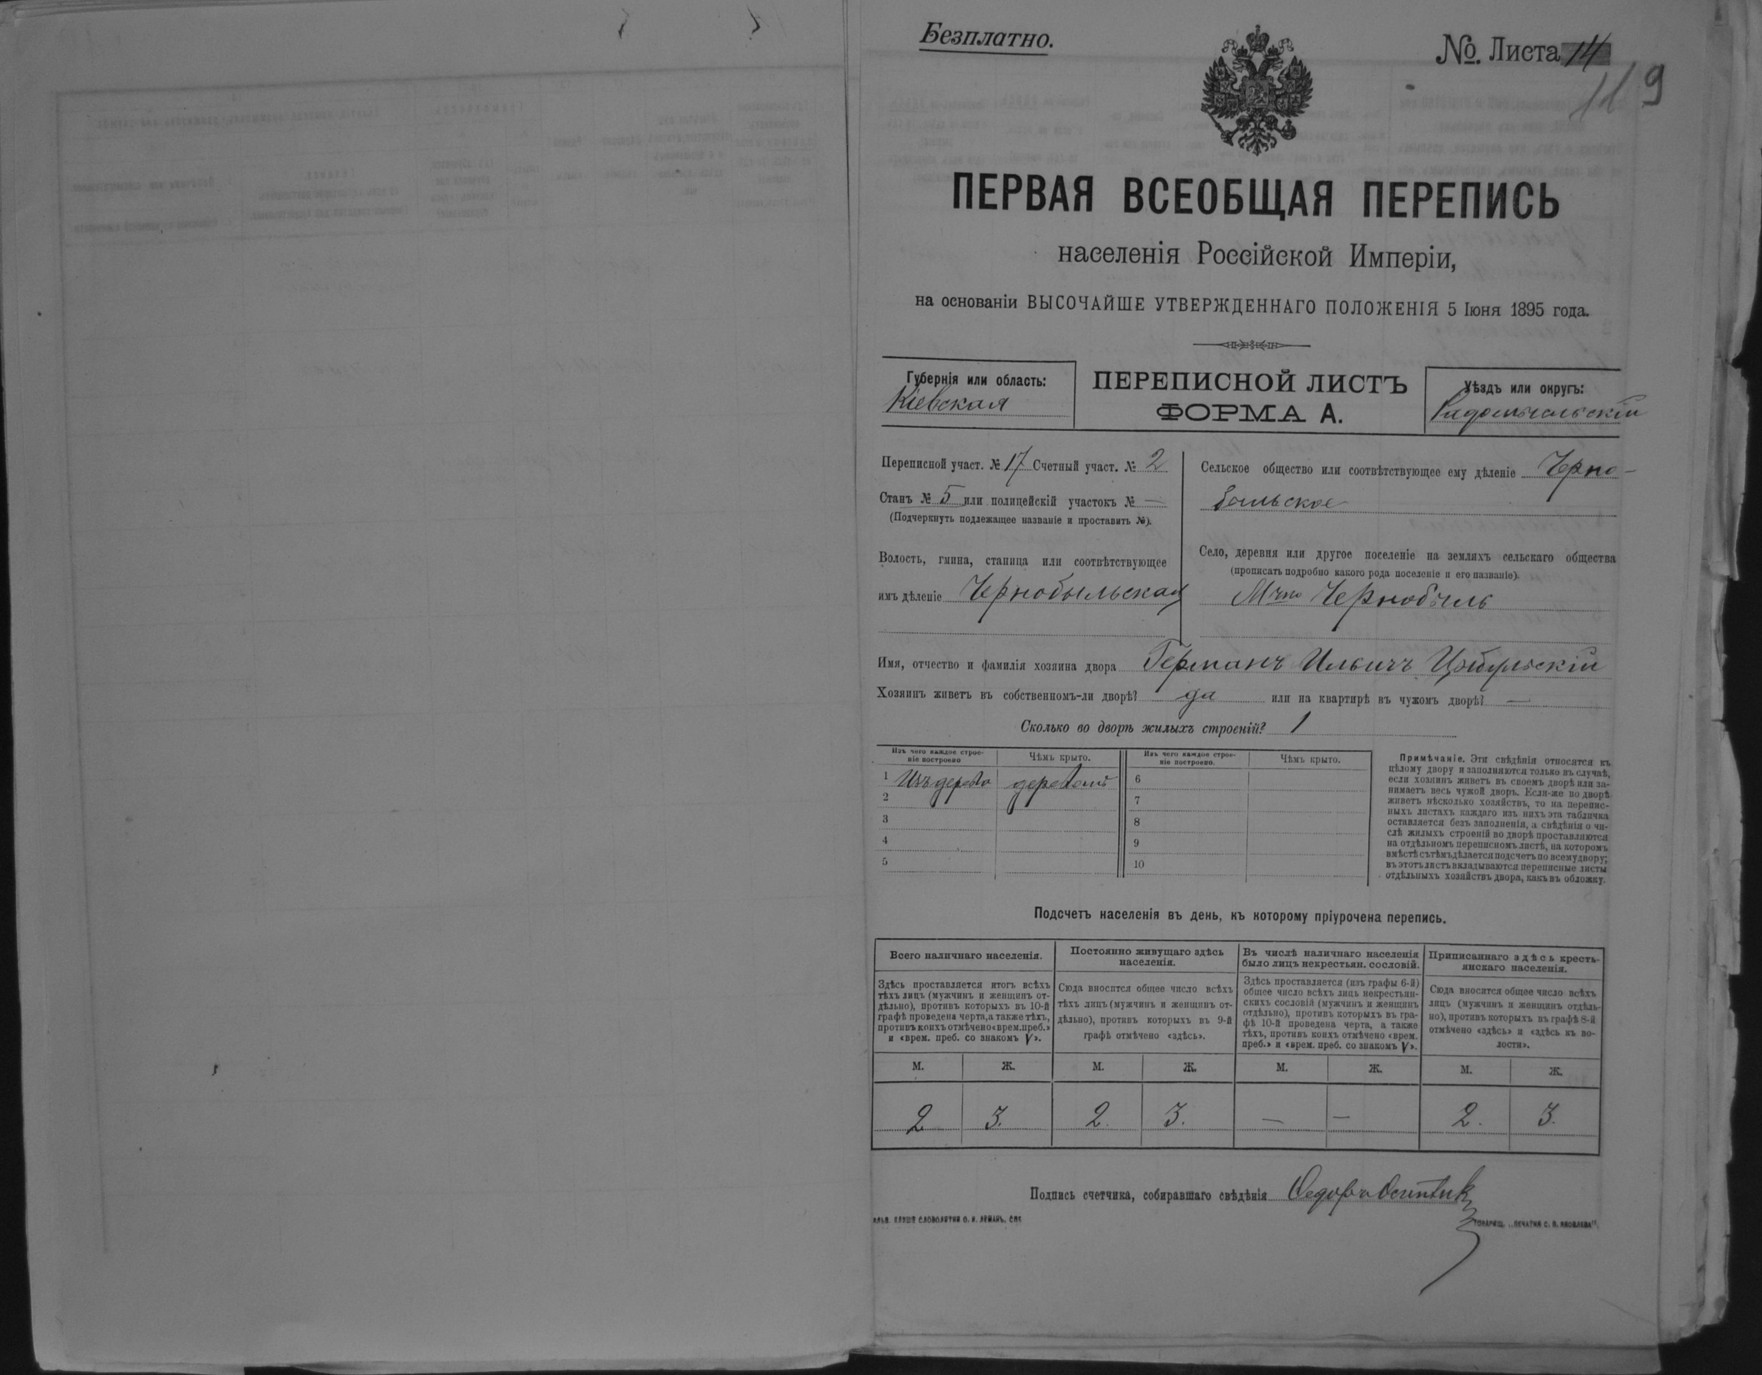 Безплатно.
№ Листа 14
119
ПЕРВАЯ ВСЕОБЩАЯ ПЕРЕПИСЬ
населенія Россійской Имперіи,
на основаніи ВЫСОЧАЙШЕ УТВЕРЖДЕННАГО ПОЛОЖЕНІЯ 5 Іюня 1895 года.
Губернія или область:
Кіевская
ПЕРЕПИСНОЙ ЛИСТЪ
ФОРМА А.
Уѣздъ или округъ:
Радомысльскій
Переписной участ. № 17 Счетный участ. № 2
Станъ № 5 или полицейскій участокъ № —
(Подчеркнуть подлежащее названіе и проставить №).
Волость, гмина, станица или соотвѣтствующее
имъ дѣленіе Чернобыльская
Сельское общество или соотвѣтствующее ему дѣленіе Черно-
быльское
Село, деревня или другое поселеніе на земляхъ сельскаго общества
(прописать подробно какого рода поселеніе и его названіе).
Мѣчко Чернобыль
Имя, отчество и фамилія хозяина двора Германъ Ильичъ Цыбульскій
Хозяинъ живетъ въ собственномъ-ли дворѣ? да или на квартирѣ въ чужомъ дворѣ? —
Сколько во дворѣ жилыхъ строеній? 1
Изъ чего каждое строе-
ніе построено
Чѣмъ крыто.
Изъ чего каждое строе-
ніе построено.
Чѣмъ крыто.
1 Изъ дерева деревомъ 6
2 7
3 8
4 9
5 10
Примѣчаніе. Эти свѣдѣнія относятся къ
цѣлому двору и заполняются только въ случаѣ,
если хозяинъ живетъ въ своемъ дворѣ или за-
нимаетъ весь чужой дворъ. Если-же во дворѣ
живетъ нѣсколько хозяйствъ, то на перепис-
ныхъ листахъ каждаго изъ нихъ эта табличка
оставляется безъ заполненія, а свѣдѣнія о чи-
слѣ жилыхъ строеній во дворѣ проставляются
на отдѣльномъ переписномъ листѣ, на которомъ
вмѣстѣ съ тѣмъ дѣлается подсчетъ по всему двору;
въ этотъ листъ вкладываются переписные листы
отдѣльныхъ хозяйствъ двора, какъ въ обложку.
Подсчетъ населенія въ день, къ которому пріурочена перепись.
Всего наличнаго населенія.
Здѣсь проставляется итогъ всѣхъ
тѣхъ лицъ (мужчинъ и женщинъ от-
дѣльно), противъ которыхъ въ 10-й
графѣ проведена черта, а также тѣхъ,
противъ коихъ отмѣчено «врем. преб.»
и «врем. преб. со знакомъ V».
Постоянно живущаго здѣсь
населенія.
Сюда вносится общее число всѣхъ
тѣхъ лицъ (мужчинъ и женщинъ от-
дѣльно), противъ которыхъ въ 9-й
графѣ отмѣчено «здѣсь».
Въ числѣ наличнаго населенія
было лицъ некрестьян. сословій.
Здѣсь проставляется (изъ графы 6-й)
общее число всѣхъ лицъ некрестьян-
скихъ сословій (мужчинъ и женщинъ
отдѣльно), противъ которыхъ въ гра-
фѣ 10-й проведена черта, а также
тѣхъ, противъ коихъ отмѣчено «врем.
преб.» и «врем. преб. со знакомъ V».
Приписаннаго здѣсь кресть-
янскаго населенія.
Сюда вносится общее число всѣхъ
лицъ (мужчинъ и женщинъ отдѣль-
но), противъ которыхъ въ графѣ 8-й
отмѣчено «здѣсь» и «здѣсь къ во-
лости».
М. Ж. М. Ж. М. Ж. М. Ж.
2 3. 2. 3. — — 2. 3.
Подпись счетчика, собиравшаго свѣдѣнія
СЛОВОЛИТНИ О. И. ЛЕМАНЪ, СПБ
ПЕЧАТНИ С. П. ЯКОВЛЕВА".